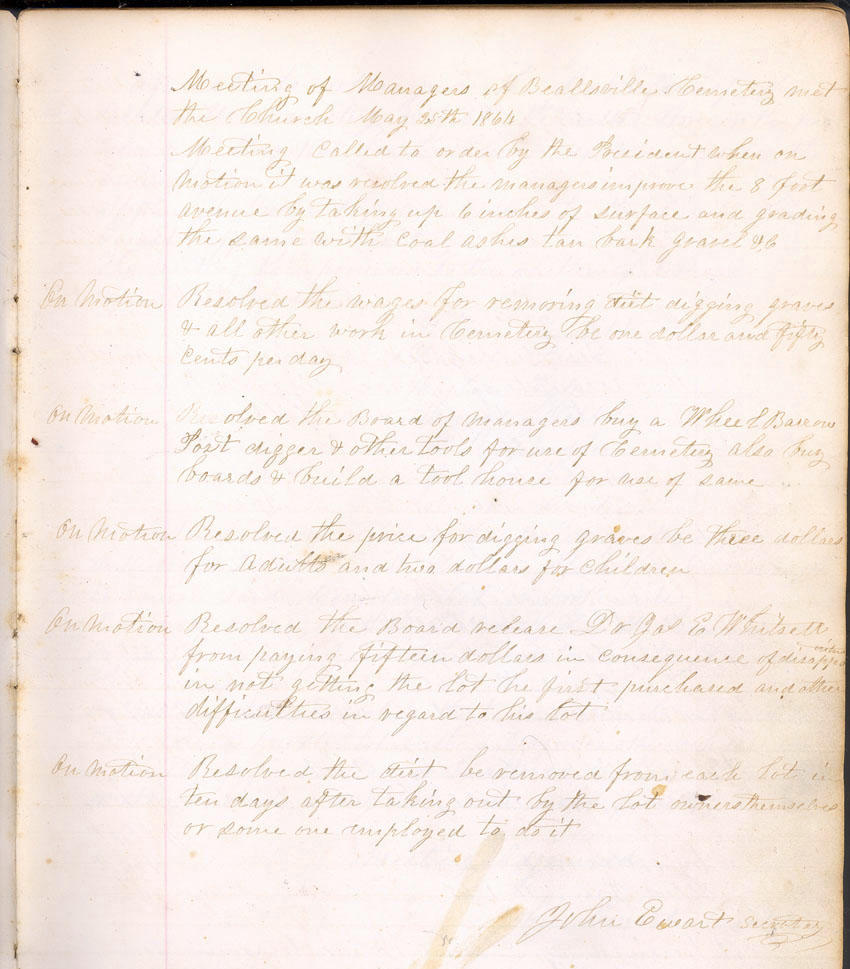 Meeting of Managers of Beallsville Cemetery met
the Church May 25th 1864
Meeting Called to order by the President when on
motion it was resolved the managers improve the 8 foot
avenue by taking up 6 inches of surface and grading
the same with coal ashes tan bark gravel &c
On Motion Resolved the wages for removing dirt digging graves
& all other work in Cemetery be one dollar and fifty
cents per day
On Motion Resolved the Board of managers buy a Wheel Barrow
Post digger & other tools for use of Cemetery also buy
boards & build a tool house for use of same
On Motion Resolved the price for digging graves be three dollars
for adults and two dollars for children
On Motion Resolved the Board release Dr Jas E Whitsett
from paying fifteen dollars in consequence of
in not getting the lot he first purchased and other
difficulties in regard to his lot
On Motion Resolved the dirt be removed from each lot in
ten days after taking out by the lot owners themselves
or some one employed to do it
John Ewart Secretary